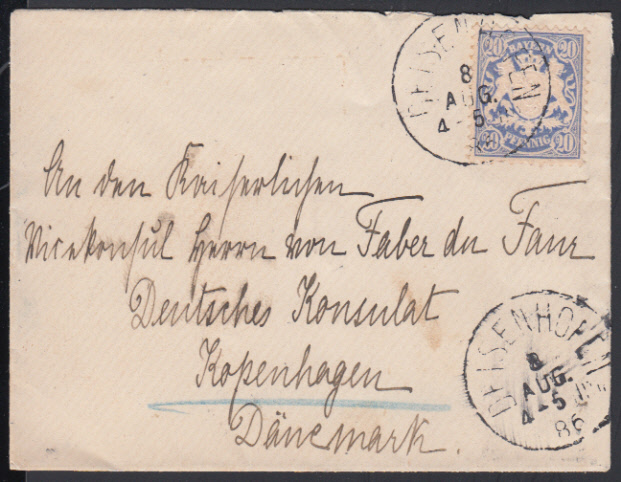 DEISENHOFEN
8
AUG.
4-5
86
20 BAYERN 20
20 PFENNIG 20
An den Kaiserlichen
Vicekonsul Herrn von Faber du Faur
Deutsches Konsulat
Kopenhagen
Dänemark.
DEISENHOFEN
8
AUG.
4-5
86